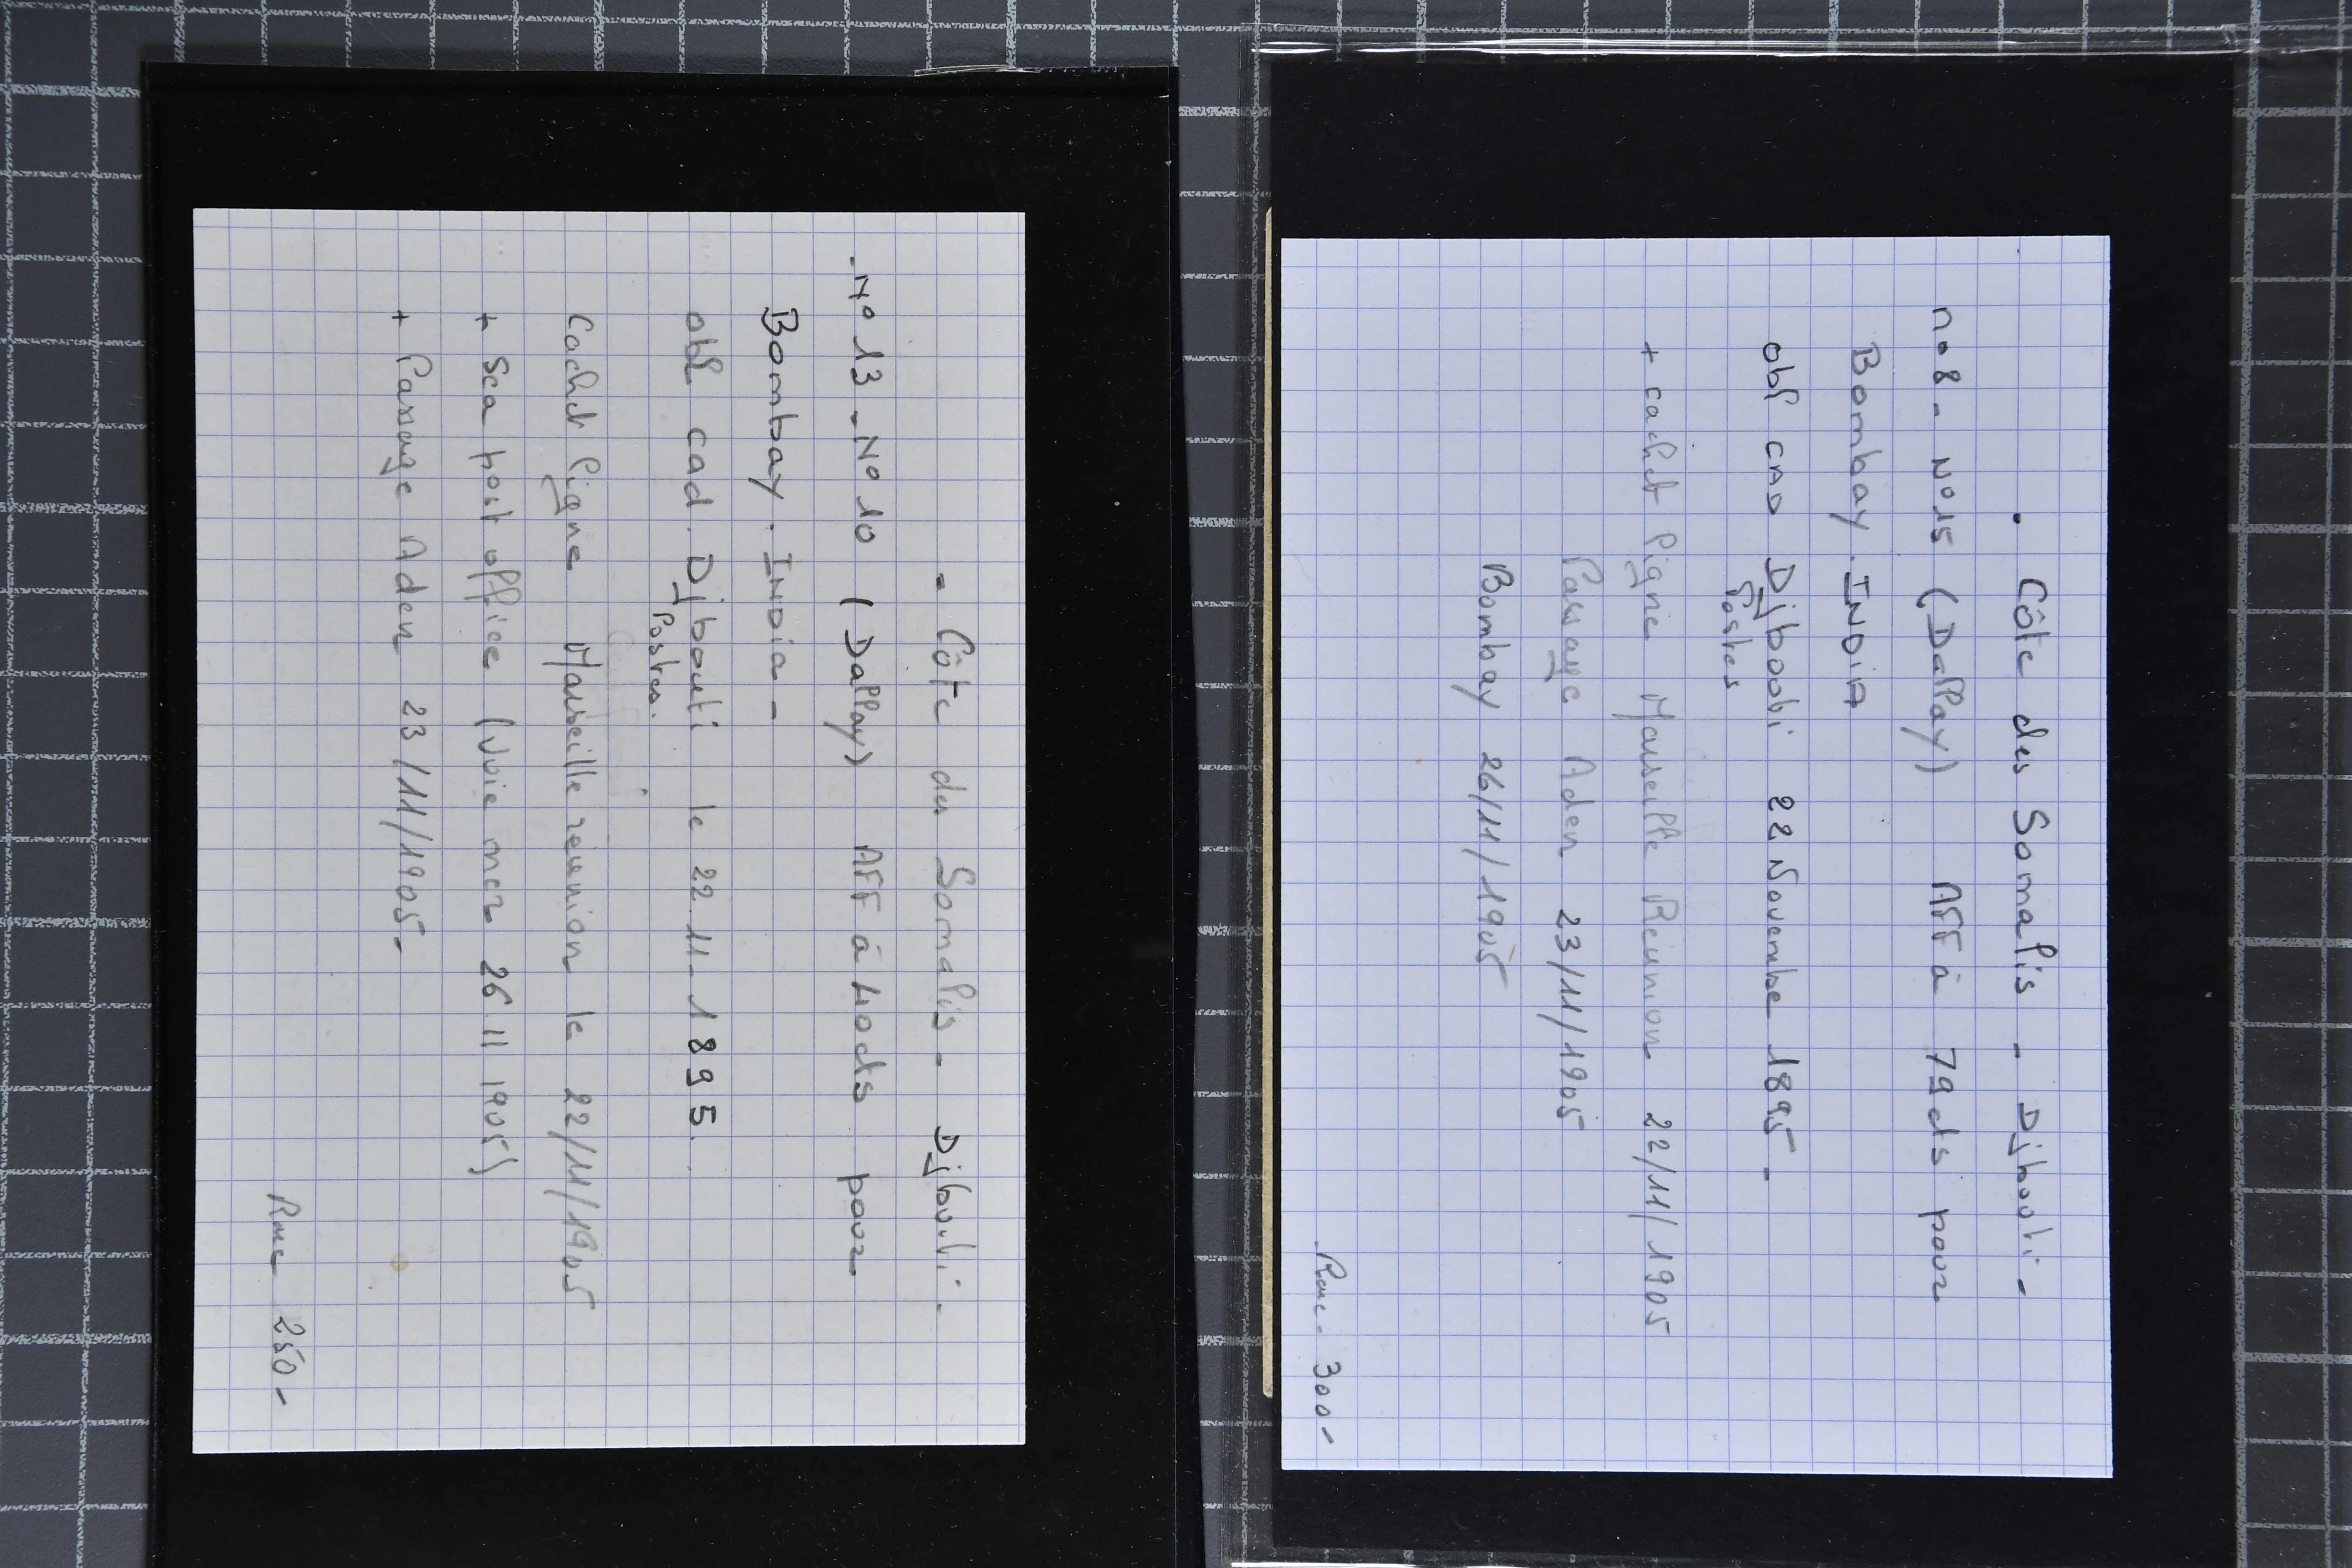 - Côte des Somalis - Djibouti -
- No 13 - No 10 (Dallay) AFF à 40cts pour
Bombay. INDia -
obl cad. Djibouti le 22.11.1895.
Postes.
Cachet ligne Marseille réunion le 22/11/1905
+ Sea post office (Voie mer 26 11 1905)
+ Passage Aden 23/11/1905-
250 -
. Côte des Somalis - Djibouti -
no 8 - No 15 (Dallay) AFF à 79cts pour
Bombay. INDIA
obl CAD Djibouti 22 Novembre 1895 -
Postes
+ cachet ligne Marseille Réunion 22/11/1905
Passage Aden 23/11/1905
Bombay 26/11/1905
300 -